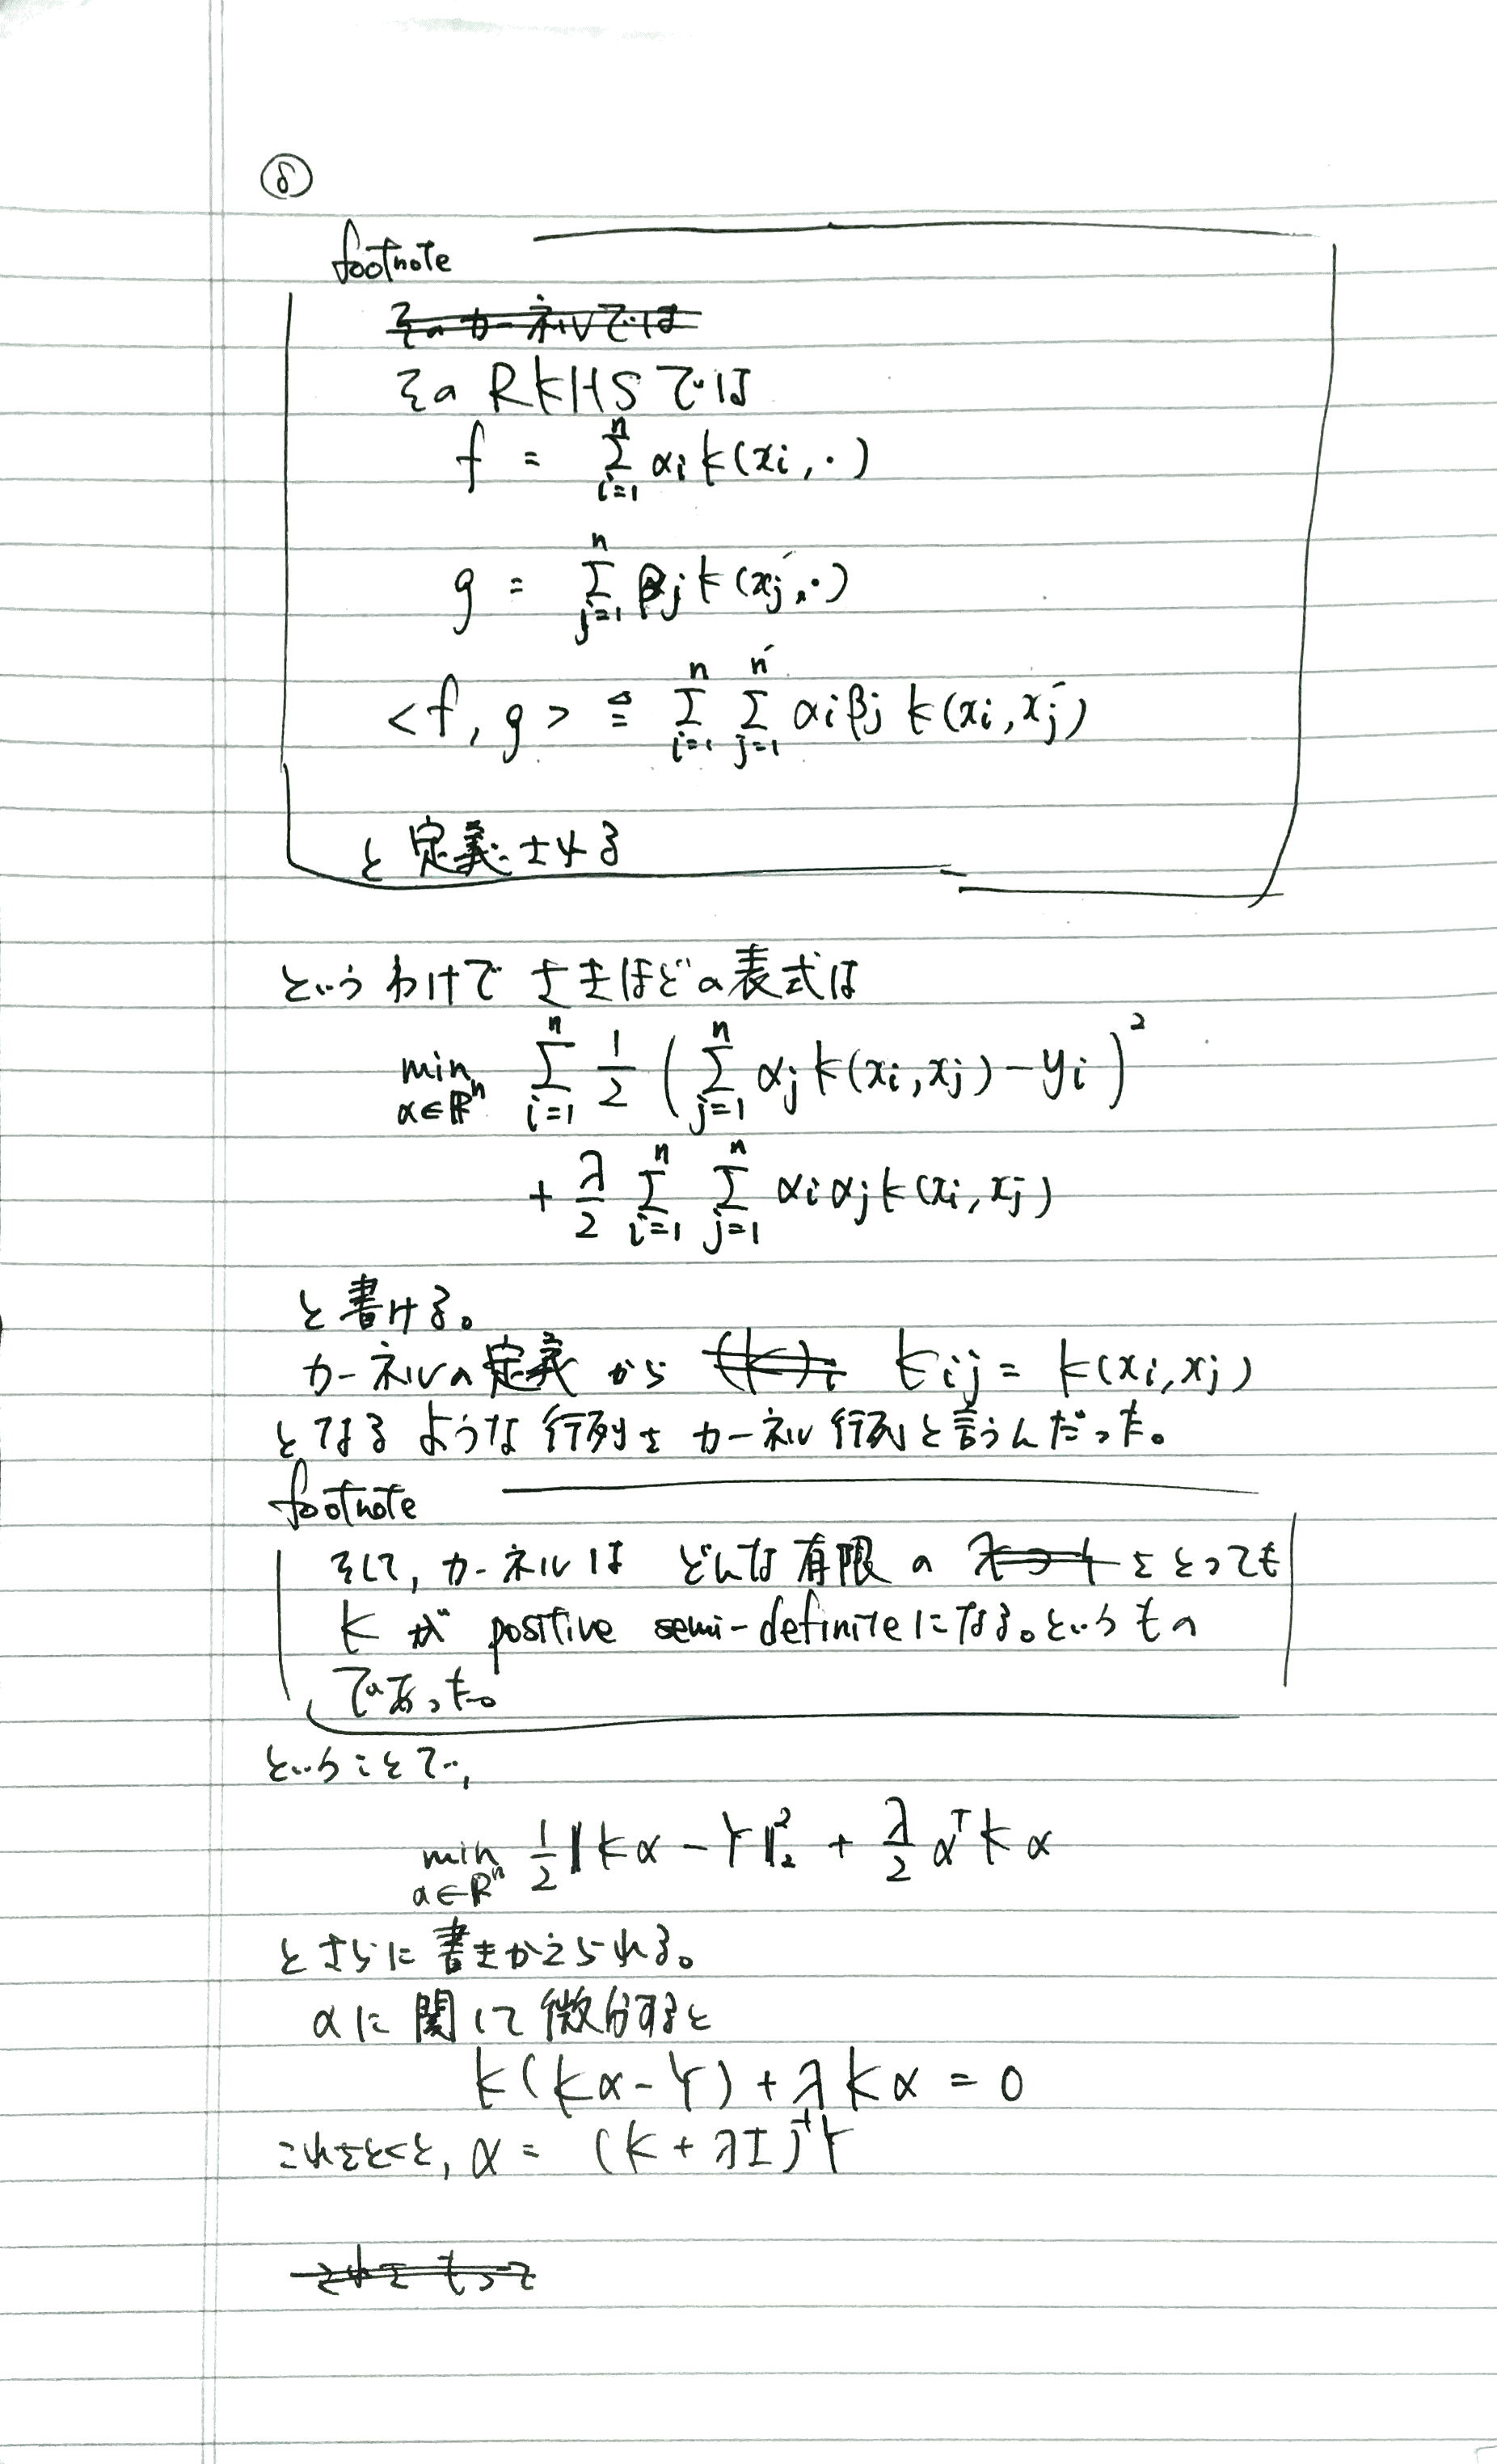 ⑧
footnote
そのカーネルでは
そのRKHSでは
f = Σ_{i=1}^{n} αi k(xi, ·)
g = Σ_{j=1}^{n} βj k(xj', ·)
<f, g> ≜ Σ_{i=1}^{n} Σ_{j=1}^{n'} αi βj k(xi, xj')
と定義される
というわけで さきほどの表式は
min_{α∈ℝ^n} Σ_{i=1}^{n} 1/2 ( Σ_{j=1}^{n} αj k(xi, xj) − yi )^2
+ λ/2 Σ_{i=1}^{n} Σ_{j=1}^{n} αi αj k(xi, xj)
と書ける。
カーネルの定義から (K)i Kij = k(xi, xj)
となるような行列を カーネル行列と言うんだった。
footnote
そして, カーネルは どんな有限の をとっても
K が positive semi-definiteになる。というもの
であった。
ということで,
min_{α∈ℝ^n} 1/2 ‖Kα − Y‖_2^2 + λ/2 α^T K α
とさらに書きかえられる。
αに関して微分すると
K(Kα − Y) + λKα = 0
これをとくと, α = (K + λI)^{-1} Y
それをもって